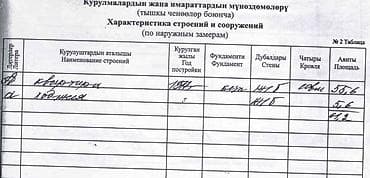 Курулмалардын жана имараттардын мүнөздөмөлөрү
(тышкы ченөөлөр боюнча)
Характеристика строений и сооружений
(по наружным замерам)
№ 2 Таблица
Литерлер
Литера
Курулуштардын аталышы
Наименование строений
Курулган жылы
Год постройки
Фундаменти
Фундамент
Дубалдары
Стены
Чатыры
Кровля
Аянты
Площадь
квартира ж/б 55,6
лоджия ж/б 5,6
61,2